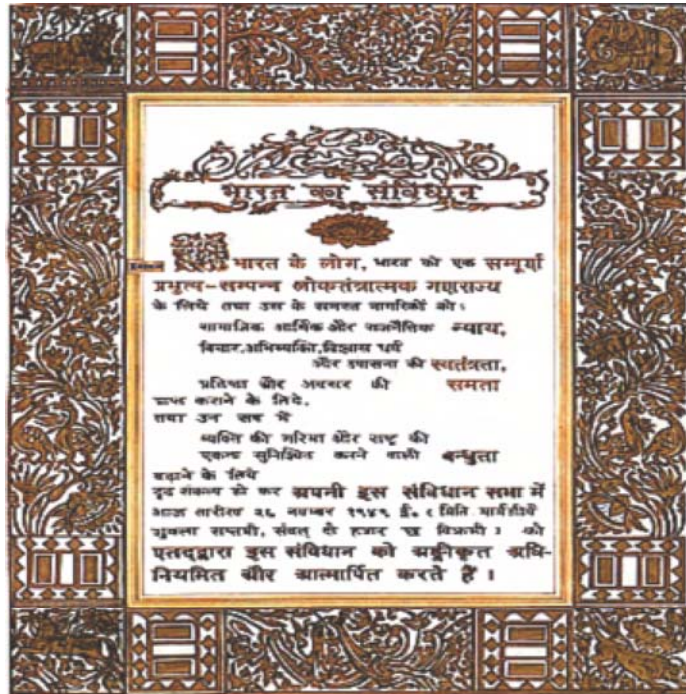 भारत का संविधान
भारत के लोग, भारत को एक सम्पूर्ण
प्रभुत्व-सम्पन्न लोकतंत्रात्मक गणराज्य
के लिये तथा उस के समस्त नागरिकों को :
सामाजिक आर्थिक और राजनैतिक न्याय,
विचार,अभिव्यक्ति,विश्वास धर्म
और उपासना की स्वतंत्रता,
प्रतिष्ठा और अवसर की समता
प्राप्त कराने के लिये,
तथा उन सब में
व्यक्ति की गरिमा और राष्ट्र की
एकता सुनिश्चित करने वाली बन्धुता
बढ़ाने के लिये
दृढ़ संकल्प हो कर अपनी इस संविधान सभा में
आज तारीख २६ नवम्बर १९४९ ई. ( मिति मार्गशीर्ष
शुक्ला सप्तमी, संवत् दो हजार छ विक्रमी ) को
एतद्द्वारा इस संविधान को अङ्गीकृत अधि-
नियमित और आत्मार्पित करते हैं ।